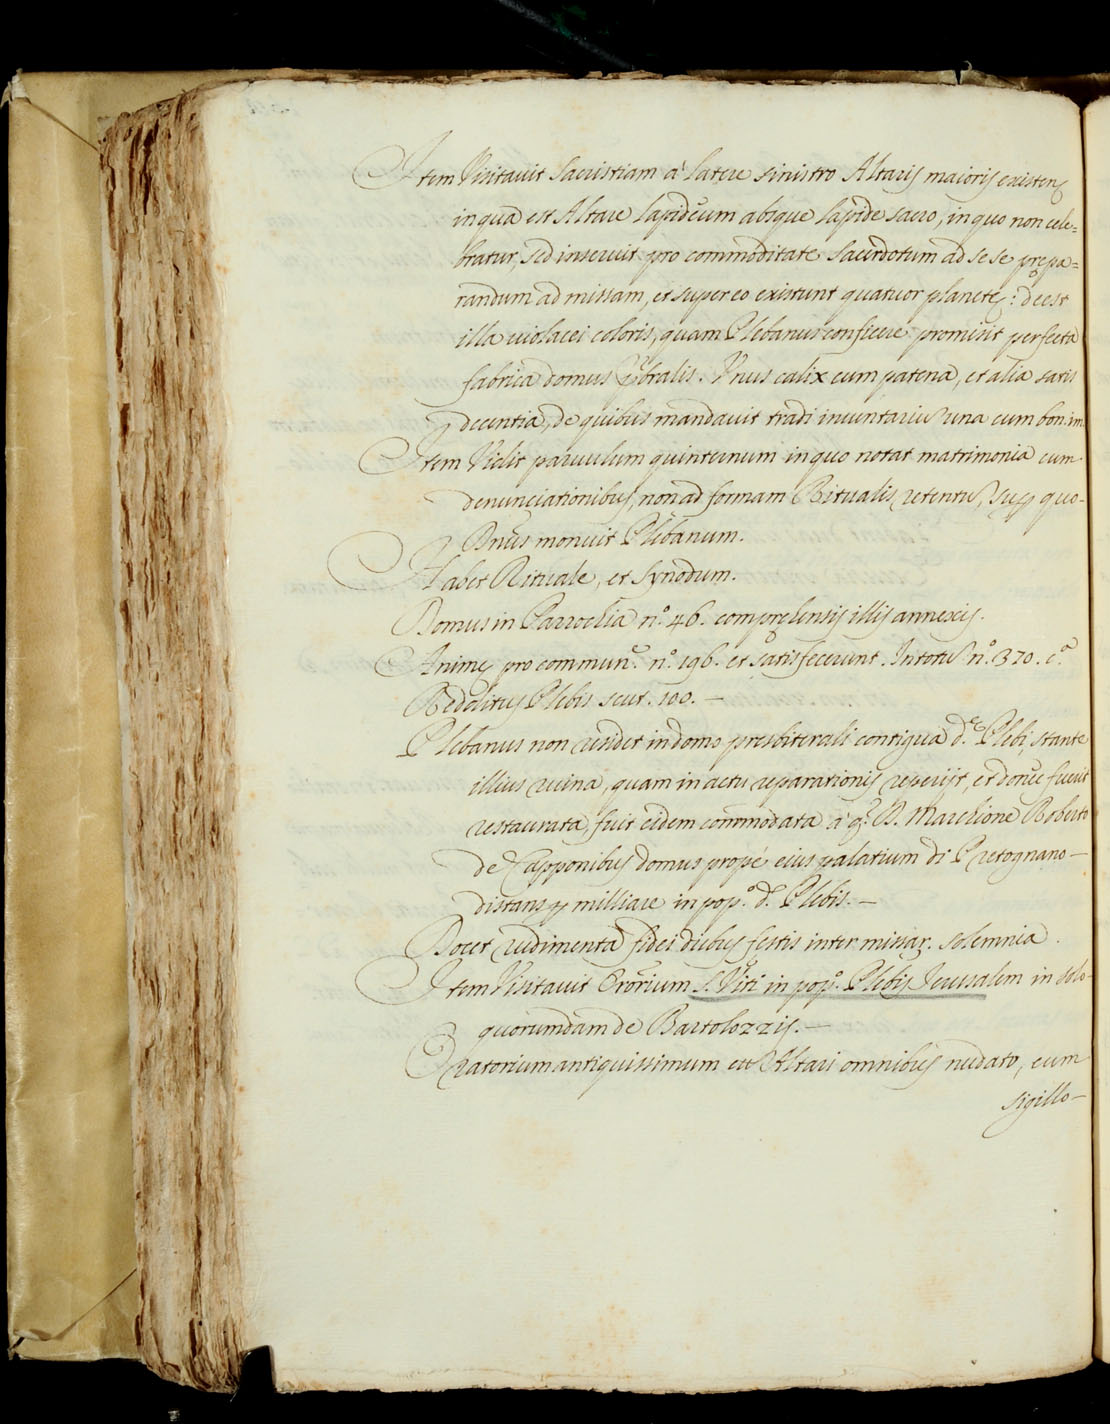 Item Visitavit Sacristiam à latere sinistro Altaris maioris existen
in qua est Altare lapideum absque lapide sacro, in quo non cele=
bratur, sed inservit pro commoditate Sacerdotum ad se se prepa=
randum ad missam, et super eo existunt quatuor planetę: deest
illa violacei coloris, quam Plebanus conficere promisit perfecta
fabrica domus . Vnus calix cum patena, et alia satis
decentia, de quibus mandavit tradi inventariũ una cum bon. im.
Item Vidit parvulum quinternum in quo notat matrimonia cum
denunciationibus, non ad formam Ritualis retentũ, quo-
Dnũs monuit Plebanum.
Habet Rituale, et Synodum.
Domus in Parrochia n.º 46. comprehensis illis annexis.
Animę pro commun.e n.º 196. et satisfecerunt. In totũ n.º 370. c.a
Redditus Plebis scut. 100. —
Plebanus non residet in domo presbiterali contigua d.ę Plebi, stante
illius ruina, quam in actu reparationis reperijt, et donec fuerit
restaurata, fuit eidem commodata à D. Marchione Roberto
de Capponibus domus propè eius palatium di Pretognano —
distans ꝑ milliare in pop.º d.ę Plebis. —
Docet rudimenta fidei diebus festis inter missar. solemnia.
Item Visitavit Orõrium S. Viti in pop.º Plebis Jerusalem in solo
quorumdam de Bartolozzis. —
Oratorium antiquissimum cũ Altari omnibus nudato, cum
sigillo —